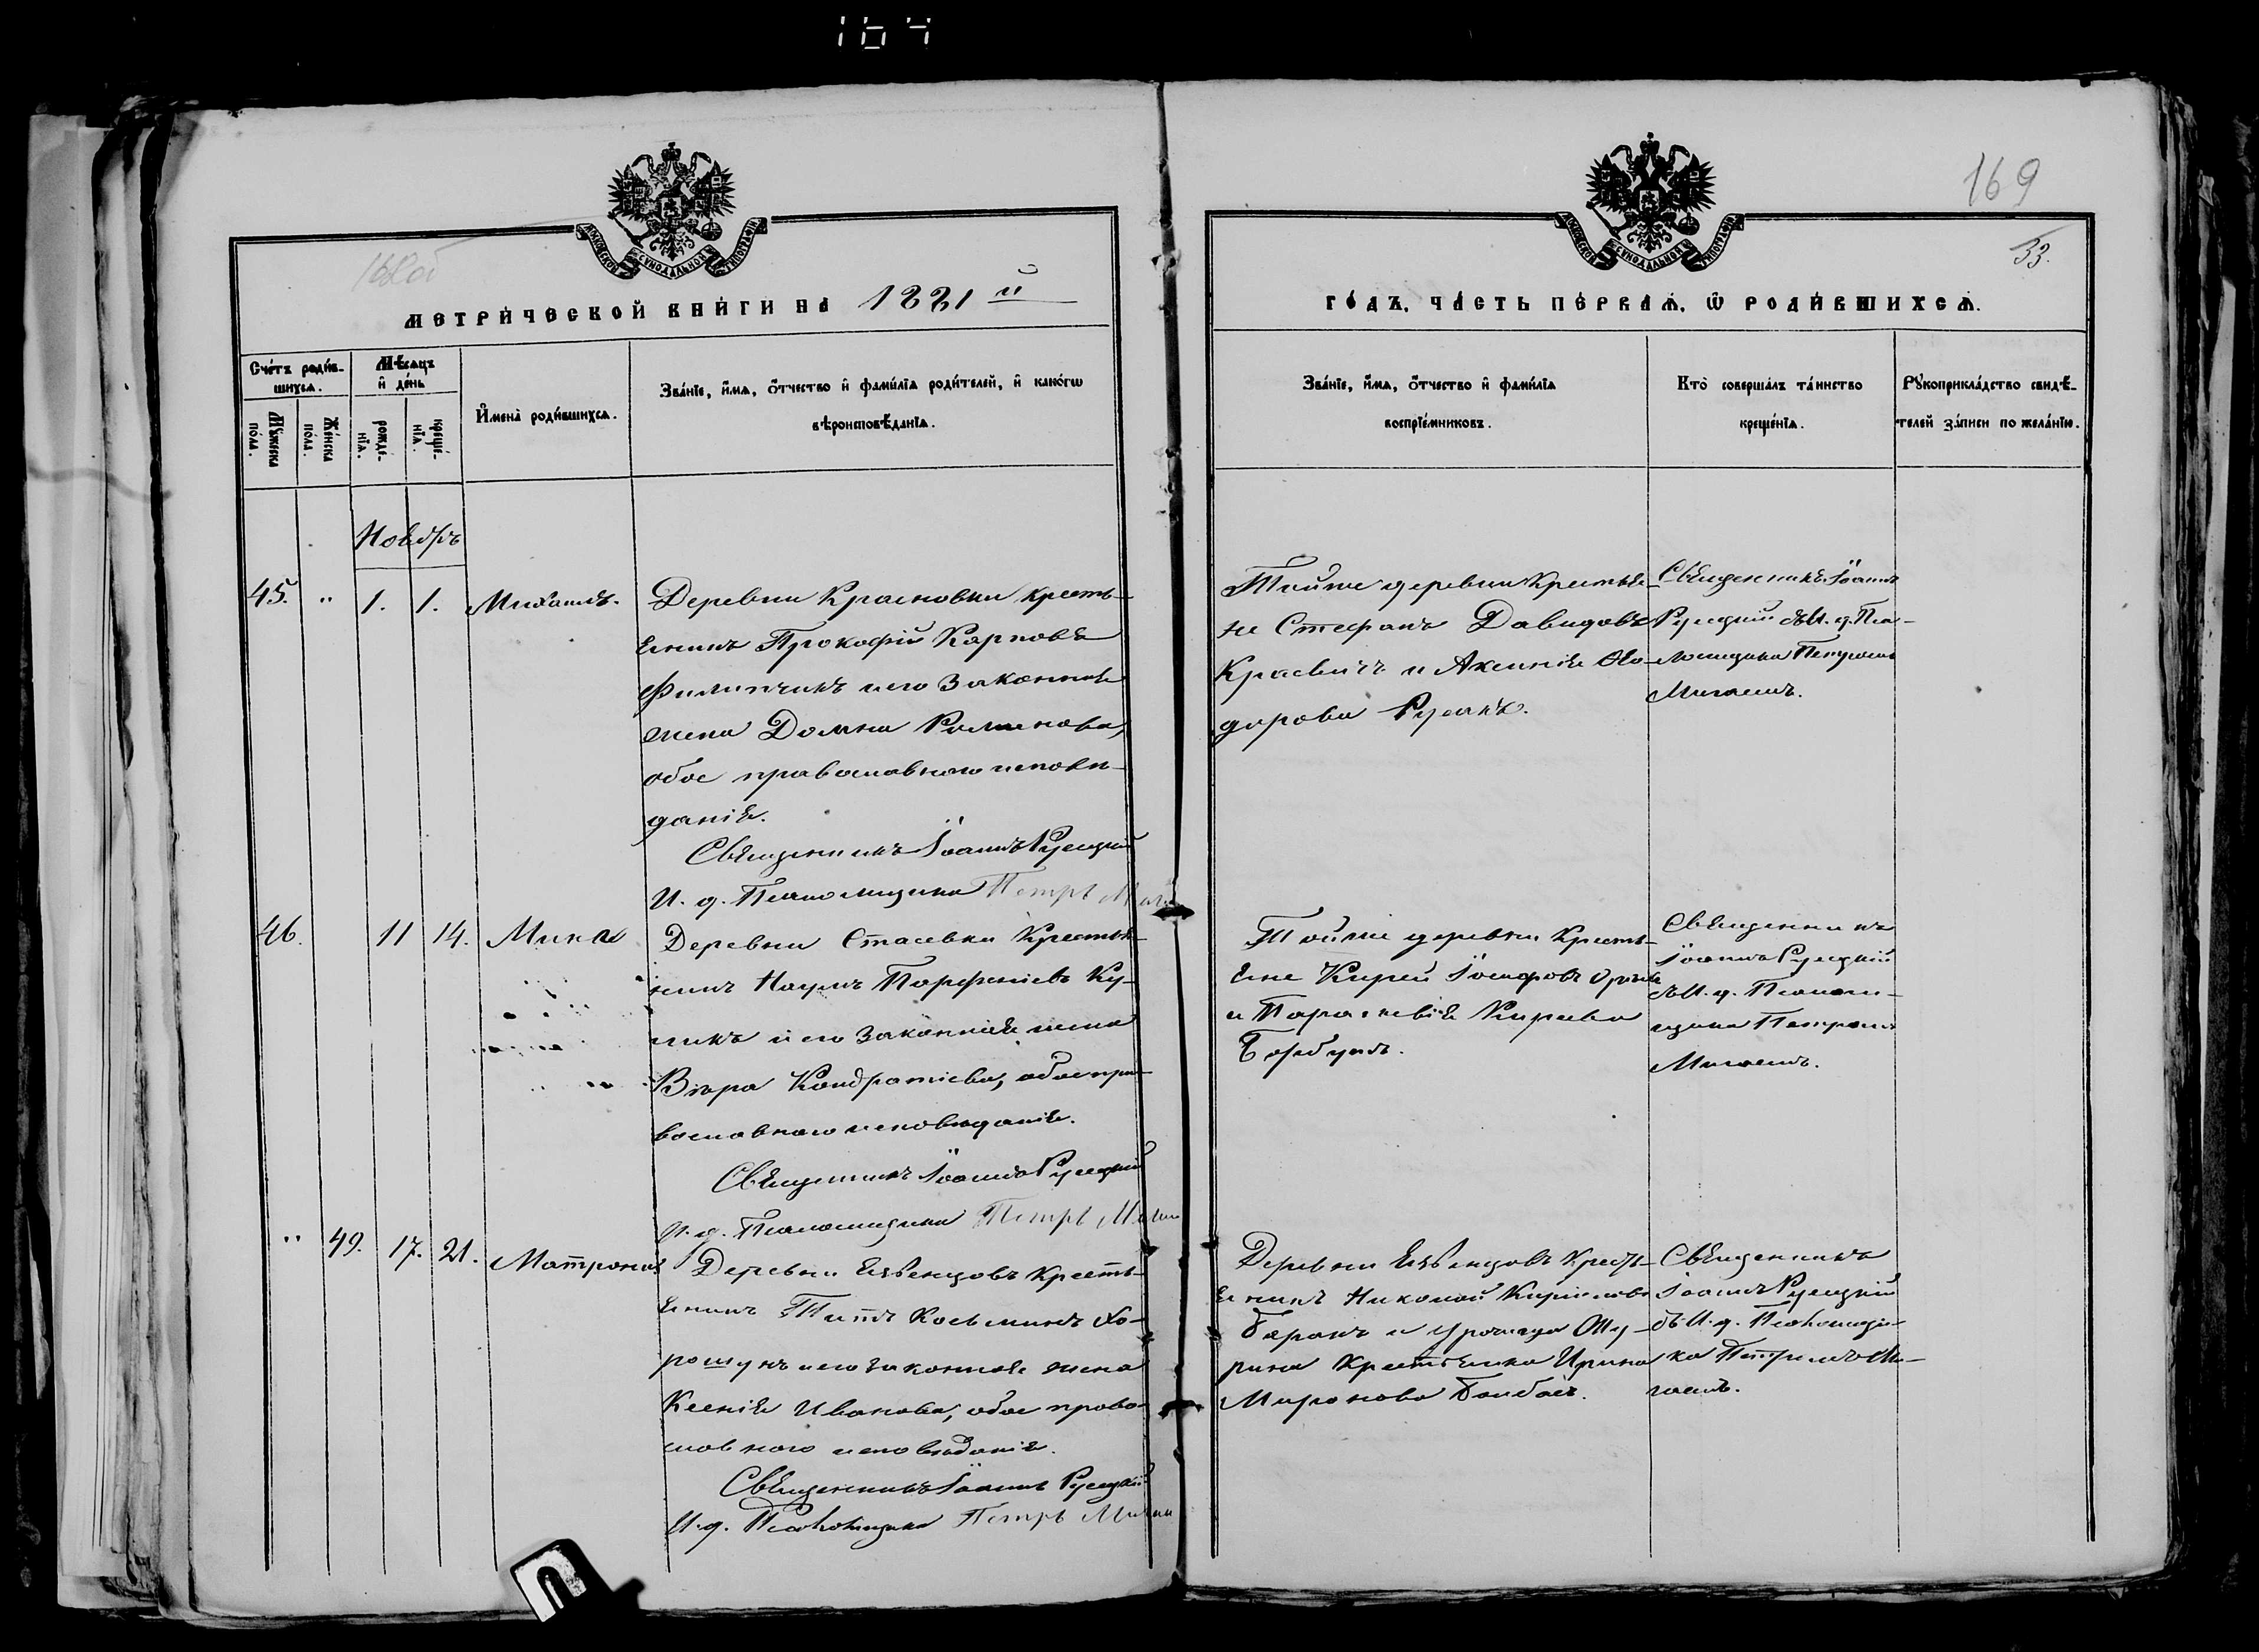 164
168об
МЕТРИЧЕСКОЙ КНИГИ НА 1881й
Счетъ родив-
шихся.
Мѣсяцъ
и день
Мужеска
пола.
Женска
пола.
рожде-
нія.
креще-
нія.
Имена родившихся.
Званіе, имя, отчество и фамилія родителей, и какогω
вѣроисповѣданія.
Ноябрь
45. " 1. 1. Михаилъ.
Деревни Красновки кресть-
янинъ Прокофій Карповъ
Филипчикъ и его законная
жена Домна Романова,
обое православнаго исповѣ-
данія.
Священникъ Іоаннъ Русецкій
И. д. Псаломщика Петръ
46. 11 14. Мина
Деревни Стасевки Крестья-
нинъ Наумъ Парфеніевъ Ку-
чикъ и его законная жена
Вѣра Кондратіева, обое пра-
вославнаго исповѣданія.
Священникъ Іоаннъ Русецкій
И. д. Псаломщика Петръ
" 49. 17. 21. Матрона
Деревни Язвенцовъ Кресть-
янинъ Титъ Косьминъ Хо-
рошунъ и его законная жена
Ксенія Иванова, обое право-
славнаго исповѣданія.
Священникъ Іоаннъ Русецкій
И. д. Псаломщика Петръ
169
33.
ГОДЪ, ЧАСТЬ ПЕРВАЯ, Ѿ РОДИВШИХСЯ.
Званіе, имя, отчество и фамилія
воспріемниковъ.
Кто совершалъ таинство
крещенія.
Рукоприкладство свидѣ-
телей записи по желанію.
Тойже деревни Крестья-
не Стефанъ Давидовъ
Красвичъ и Аксинія Ѳео-
дорова Русакъ.
Священникъ Іоаннъ
Русецкій съ И. д. Пса-
ломщика Петромъ
Тойже деревни Кресть-
яне Кирей Іосифовъ
и Параскевія Кирѣева
Барбукъ.
Священникъ
Іоаннъ Русецкій
съ И. д. Псалом-
щика Петромъ
Деревни Язвенцовъ Кресть-
янинъ Николай Кириловъ
Баранъ и урочища Шу-
рина Крестьянка Ирина
Миронова Бамбасъ.
Священникъ
Іоаннъ Русецкій
съ И. д. Псаломщи-
ка Петромъ